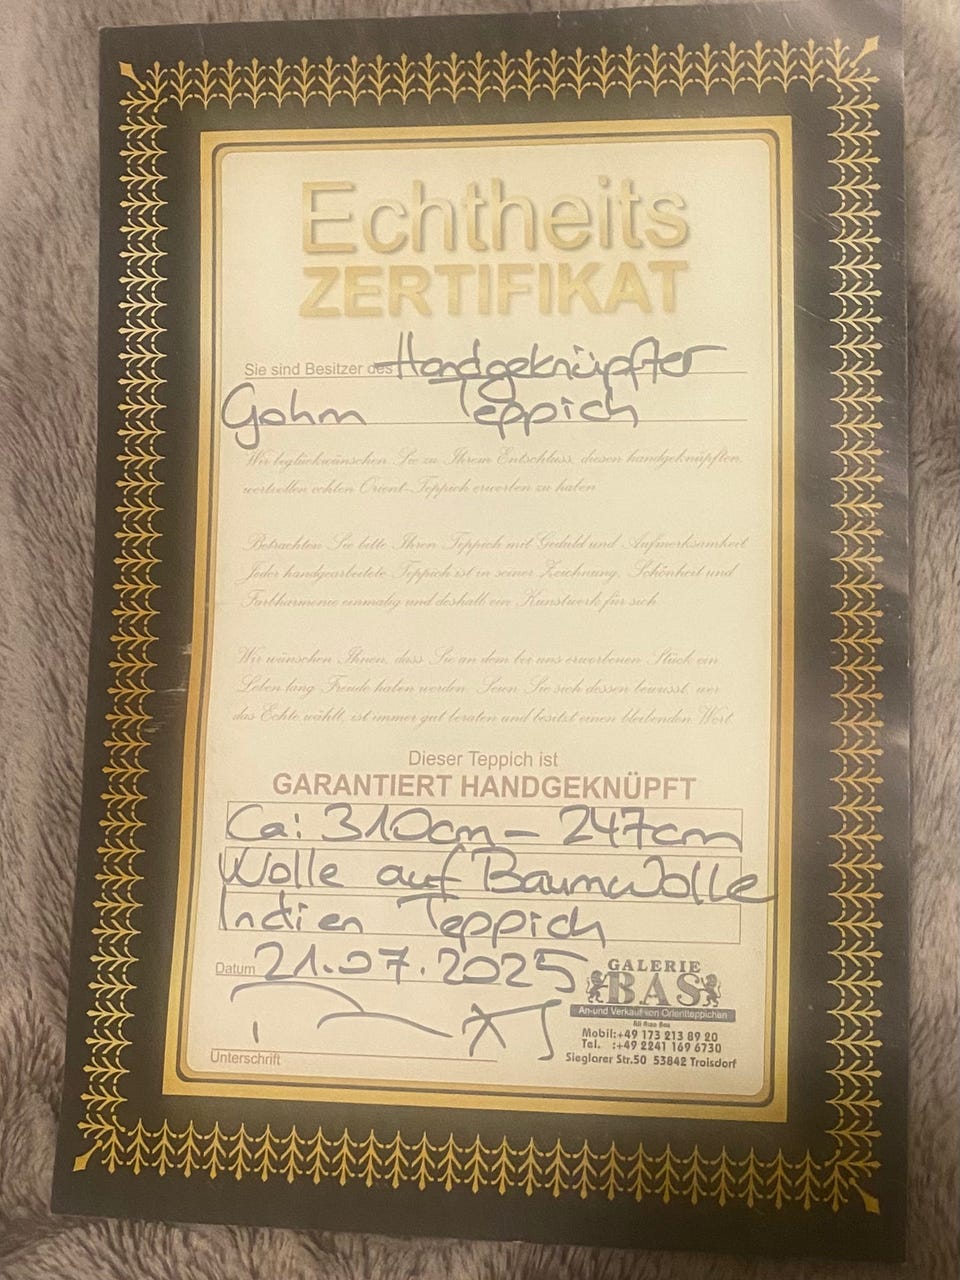 Echtheits
ZERTIFIKAT
Sie sind Besitzer des Handgeknüpfter
Gohm Teppich
Wir beglückwünschen Sie zu Ihrem Entschluss, diesen handgeknüpften,
wertvollen echten Orient-Teppich erworben zu haben
Betrachten Sie bitte Ihren Teppich mit Geduld und Aufmerksamkeit
Jeder handgearbeitete Teppich ist in seiner Zeichnung, Schönheit und
Farbharmonie einmalig und deshalb ein Kunstwerk für sich
Wir wünschen Ihnen, dass Sie an dem bei uns erworbenen Stück ein
Leben lang Freude haben werden. Seien Sie sich dessen bewusst, wer
das Echte wählt, ist immer gut beraten und besitzt einen bleibenden Wert
Dieser Teppich ist
GARANTIERT HANDGEKNÜPFT
Ca: 310cm - 247cm
Wolle auf Baumwolle
Indien Teppich
Datum 21.07.2025
GALERIE
BAS
An-und Verkauf von Orientteppichen
Mobil:+49 173 213 89 20
Tel. :+49 2241 169 6730
Sieglarer Str.50 53842 Troisdorf
Unterschrift